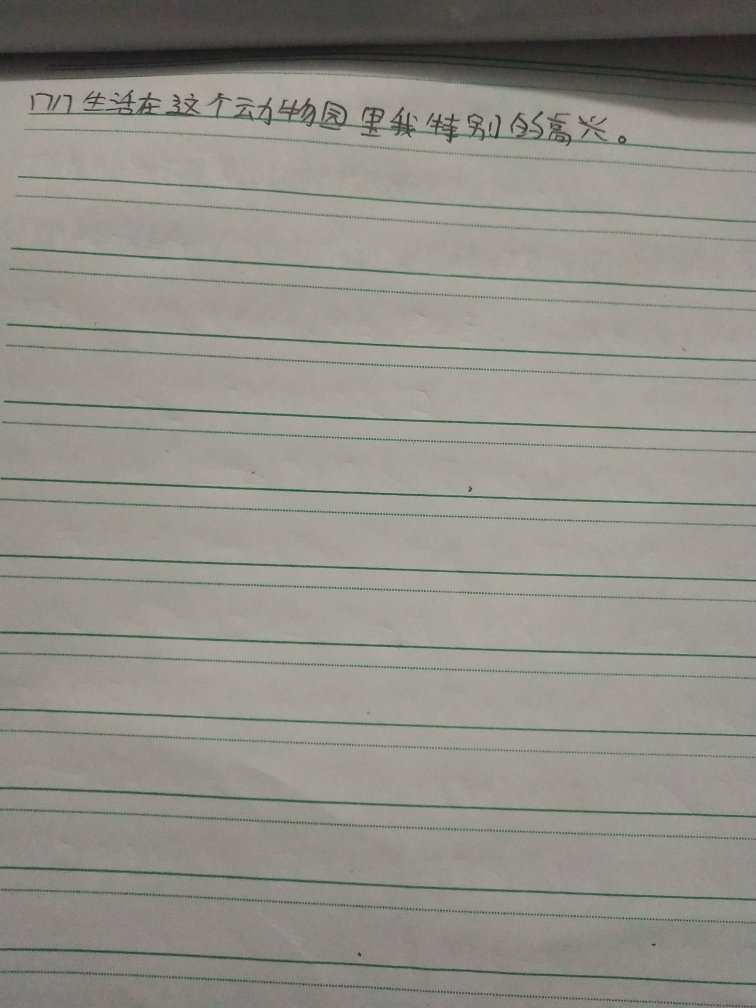 生活在这个动物园里我特别的高兴。